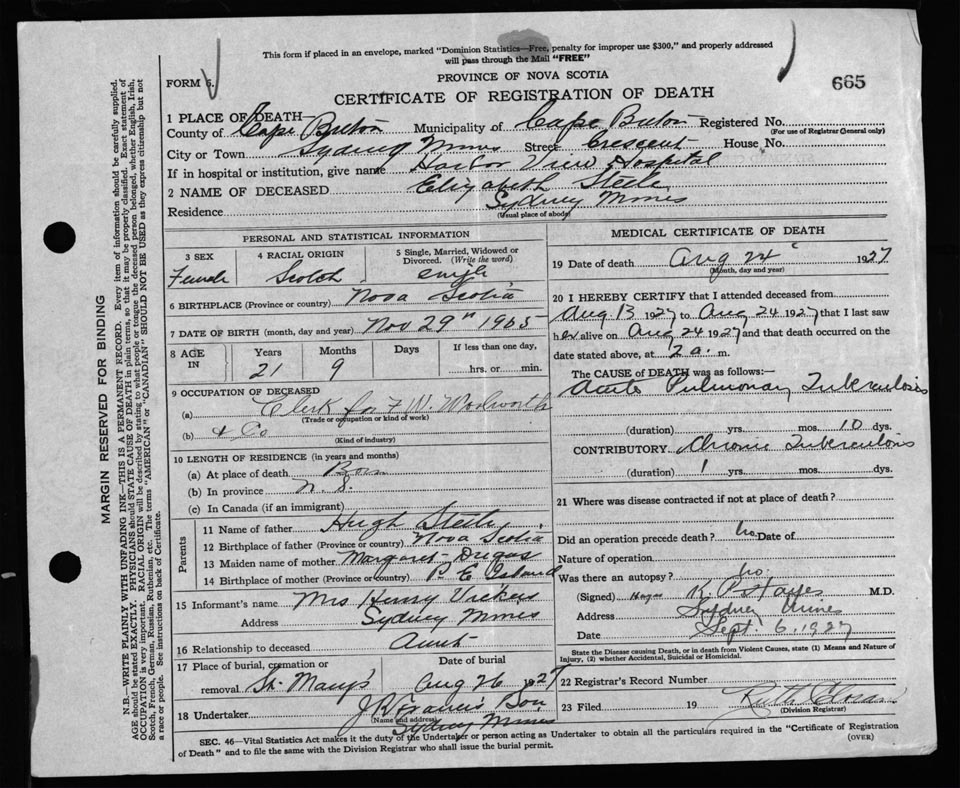 This form if placed in an envelope, marked "Dominion Statistics—Free, penalty for improper use $300," and properly addressed
will pass through the Mail "FREE"
FORM 6.
PROVINCE OF NOVA SCOTIA
665
CERTIFICATE OF REGISTRATION OF DEATH
1 PLACE OF DEATH—
County of Cape Breton Municipality of Cape Breton Registered No.
(For use of Registrar General only)
City or Town Sydney Mines Street Crescent House No.
If in hospital or institution, give name Harbor View Hospital
2 NAME OF DECEASED Elizabeth Steele
Residence Sydney Mines
(Usual place of abode)
MARGIN RESERVED FOR BINDING
N.B.—WRITE PLAINLY WITH UNFADING INK—THIS IS A PERMANENT RECORD. Every item of information should be carefully supplied.
AGE should be stated EXACTLY. PHYSICIANS should STATE CAUSE OF DEATH in plain terms, so that it may be properly classified. Exact statement of
OCCUPATION is very important. RACIAL ORIGIN will be described by stating to what people or tongue the deceased person belonged, whether English, Irish,
Scotch, French, German, Russian, Ruthenian, etc. The terms "AMERICAN" or "CANADIAN" SHOULD NOT BE USED as they express citizenship but not
a race or people. See instructions on back of Certificate.
PERSONAL AND STATISTICAL INFORMATION
3 SEX
Female
4 RACIAL ORIGIN
Scotch
5 Single, Married, Widowed or
Divorced. (Write the word)
6 BIRTHPLACE (Province or country) Nova Scotia
7 DATE OF BIRTH (month, day and year) Nov 29th 1905
8 AGE IN
Years Months Days If less than one day,
21 9 hrs. or min.
9 OCCUPATION OF DECEASED
(a) Clerk for F W. Woolworth
(Trade or occupation or kind of work)
(b) & Co
(Kind of industry)
10 LENGTH OF RESIDENCE (in years and months)
(a) At place of death
(b) In province N. S.
(c) In Canada (if an immigrant)
Parents
11 Name of father Hugh Steele
12 Birthplace of father (Province or country) Nova Scotia
13 Maiden name of mother Margaret
14 Birthplace of mother (Province or country) P. E Island
15 Informant's name Mrs Henry Vickers
Address Sydney Mines
16 Relationship to deceased Aunt
17 Place of burial, cremation or
removal St. Mary's
Date of burial
Aug 26 1927
18 Undertaker Son
(Name and address)
Sydney Mines
MEDICAL CERTIFICATE OF DEATH
19 Date of death Aug 24 1927
(Month, day and year)
20 I HEREBY CERTIFY that I attended deceased from
Aug 13 1927 to Aug 24 1927 that I last saw
her alive on Aug 24 1927 and that death occurred on the
date stated above, at 2 a. m.
The CAUSE of DEATH was as follows:—
Acute Pulmonary Tuberculosis
(duration) yrs. mos. 10 dys.
CONTRIBUTORY Chronic Tuberculosis
(duration) 1 yrs. mos. dys.
21 Where was disease contracted if not at place of death?
Did an operation precede death? no. Date of
Nature of operation
Was there an autopsy? no.
(Signed) M.D.
Address Sydney Mines
Date Sept. 6. 1927
State the Disease causing Death, or in death from Violent Causes, state (1) Means and Nature of
Injury, (2) whether Accidental, Suicidal or Homicidal.
22 Registrar's Record Number
23 Filed 19
(Division Registrar)
SEC. 46—Vital Statistics Act makes it the duty of the Undertaker or person acting as Undertaker to obtain all the particulars required in the "Certificate of Registration
of Death" and to file the same with the Division Registrar who shall issue the burial permit.
(OVER)